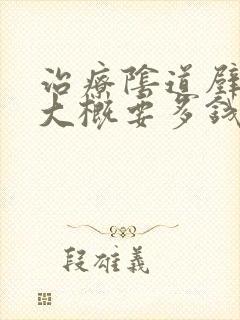 治療陰道壁
大概要多錢
段雄義